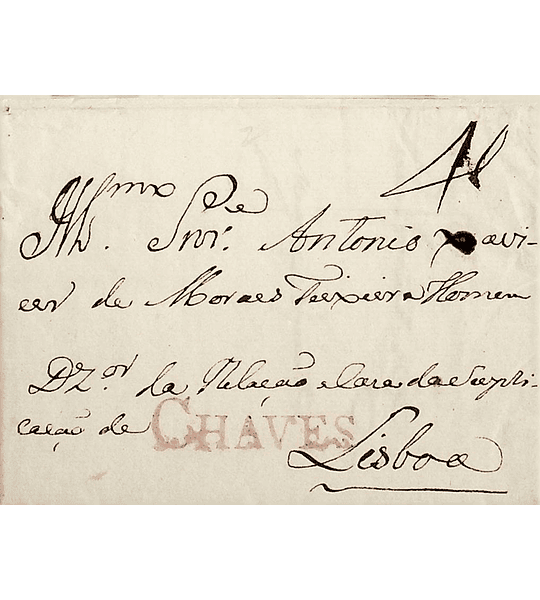 Illmo Snr. Antonio Xavi-
er de Moraes Teixeira Homem
Dzor. da Relação e Caza da Supli-
cação de
CHAVES
Lisboa